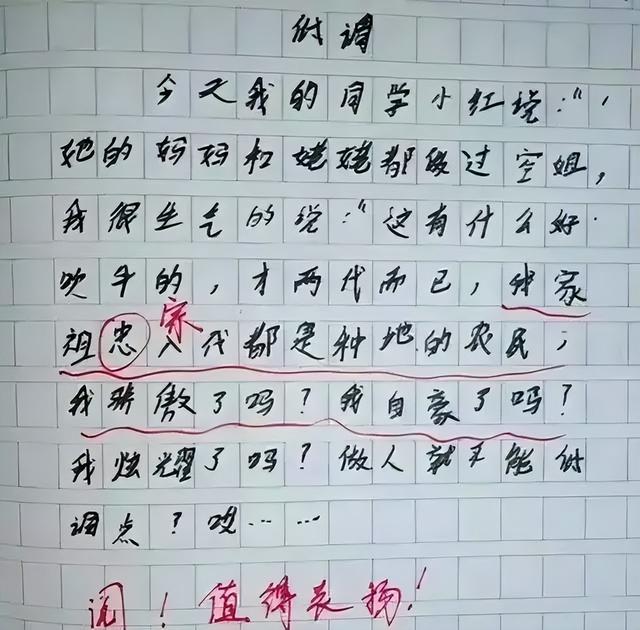 低调
今天我的同学小红说："，
她的妈妈和姥姥都做过空姐，
我很生气的说："这有什么好
吹牛的，才两代而已，我家
宗
祖忠八代都是种地的农民，
我骄傲了吗？我自豪了吗？
我炫耀了吗？做人就不能低
调点？哎……
阅！值得表扬！